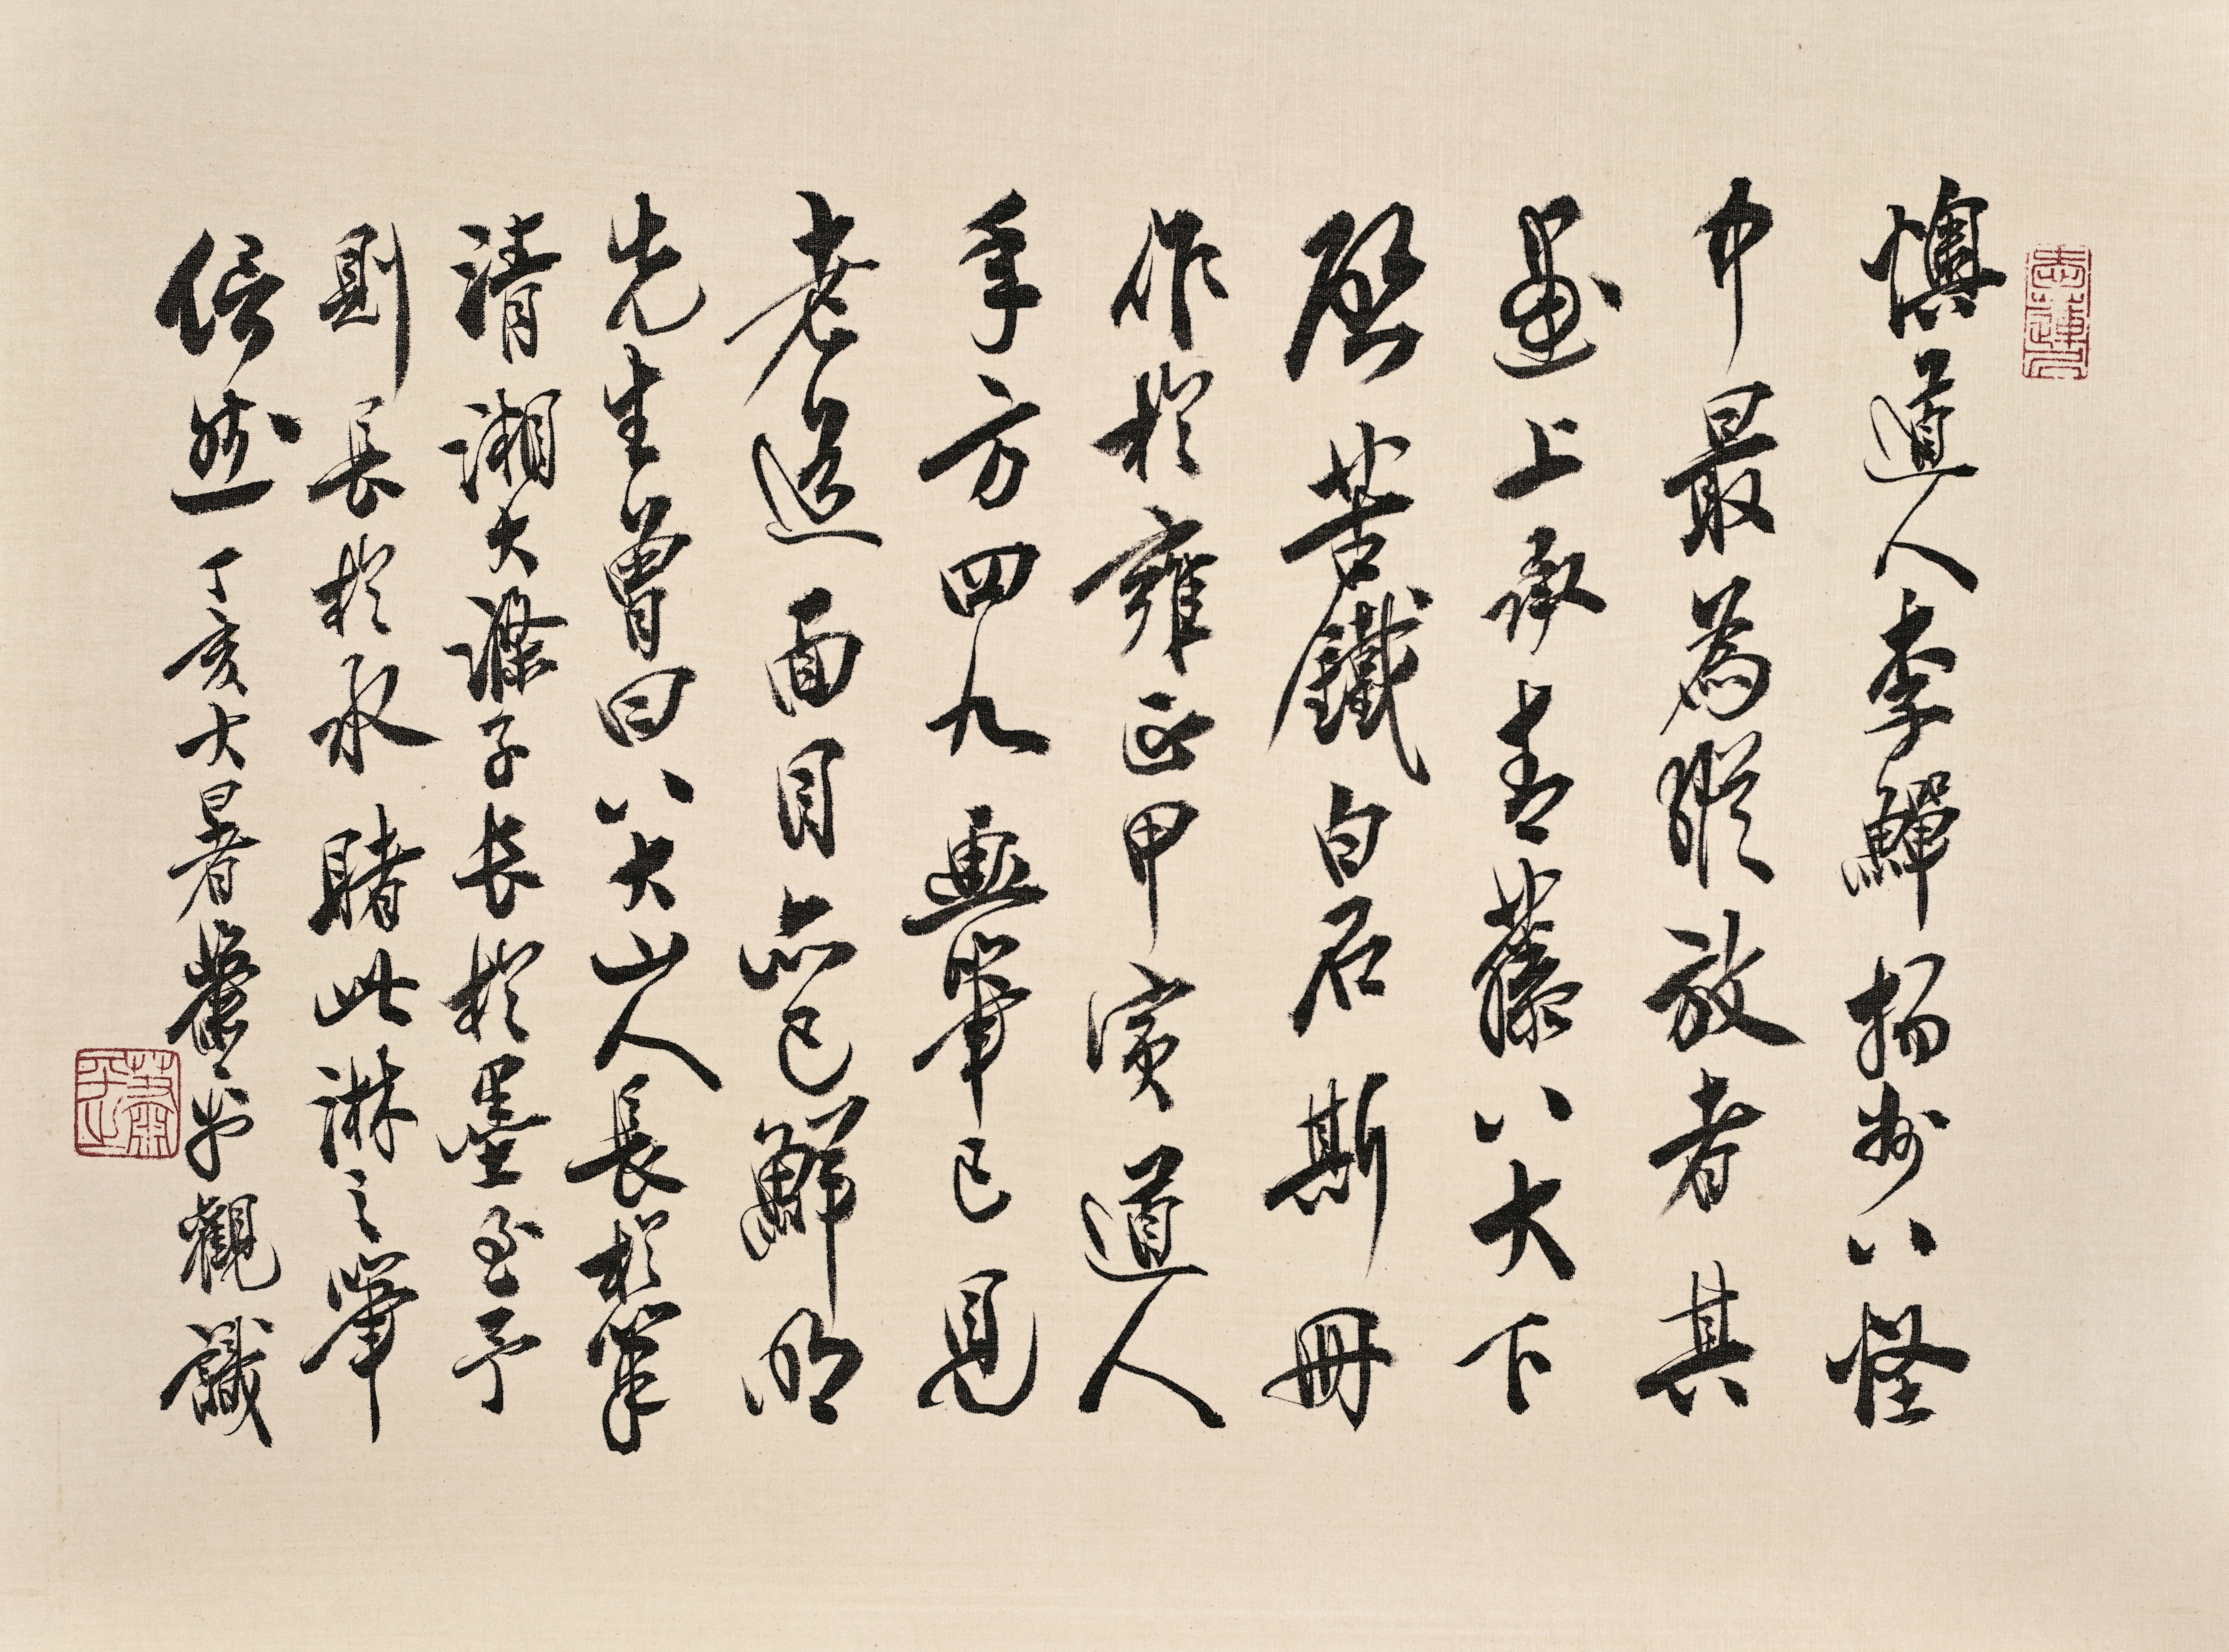 懊道人李鱓揚州八怪
中最為縱放者其
畫上承青藤八大下
啟苦鐵白石斯冊
作於雍正甲寅道人
年方四九畫筆已見
老道面目亦已鮮明
先生曾曰八大山人長於筆
清湘大滌子長於墨至予
則長於水睹此淋之筆
信然丁亥大暑蕭平觀識
蕭平